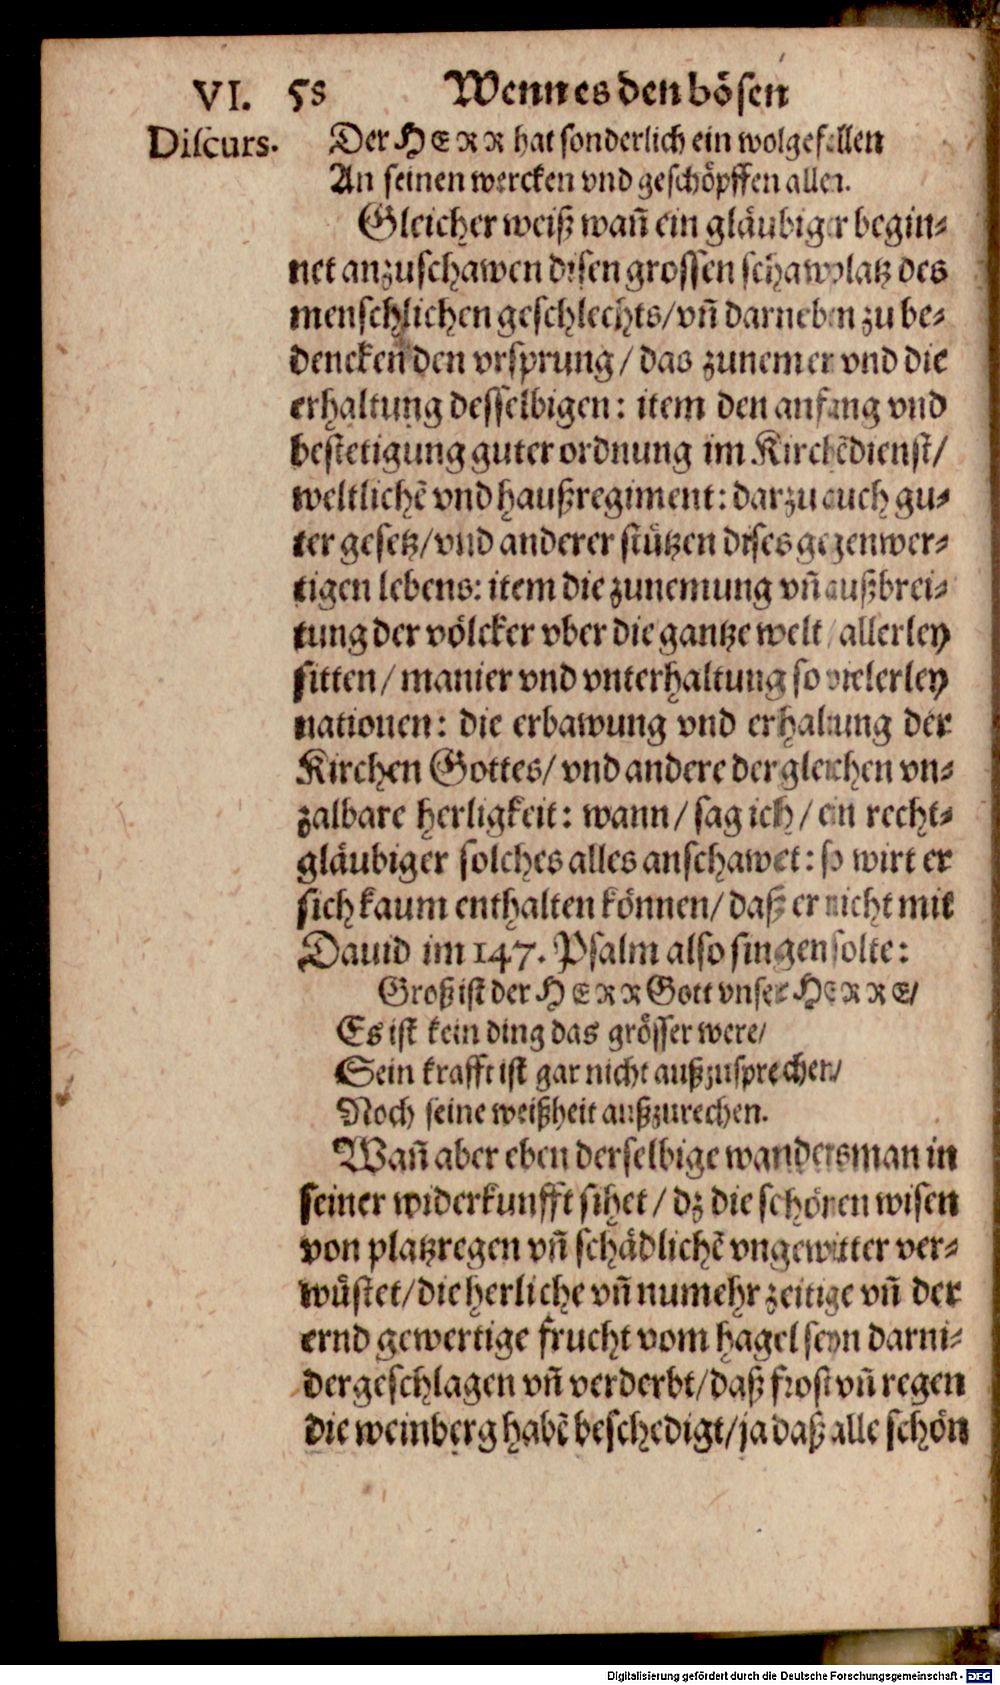 VI. 58 Wenn es den bösen
Discurs. Der HERR hat sonderlich ein wolgefallen
An seinen wercken vnd geschöpffen allen.
Gleicher weiß wañ ein gläubiger begin-
net anzuschawen disen grossen schawplatz des
menschlichen geschlechts/ vñ darneben zu be-
dencken den vrsprung/ das zunemen vnd die
erhaltung desselbigen: item den anfang vnd
bestetigung guter ordnung im Kirchẽdienst/
weltlichẽ vnd haußregiment: darzu auch gu-
ter gesetz/ vnd anderer stützen dises gegenwer-
tigen lebens: item die zunemung vñ außbrei-
tung der völcker vber die gantze welt/ allerley
sitten/ manier vnd vnterhaltung so vielerley
nationen: die erbawung vnd erhaltung der
Kirchen Gottes/ vnd andere dergleichen vn-
zalbare herligkeit: wann/ sag ich/ ein recht-
gläubiger solches alles anschawet: so wirt er
sich kaum enthalten können/ daß er nicht mit
Dauid im 147. Psalm also singen solte:
Groß ist der HERR Gott vnser HERRE/
Es ist kein ding das grösser were/
Sein krafft ist gar nicht außzusprechen/
Noch seine weißheit außzurechen.
Wañ aber eben derselbige wandersman in
seiner widerkunfft sihet/ dz die schönen wisen
von platzregen vñ schädlichẽ vngewitter ver-
wüstet/ die herliche vñ numehr zeitige vñ der
ernd gewertige frucht vom hagel seyn darni-
dergeschlagen vñ verderbt/ daß frost vñ regen
die weinberg habẽ beschedigt/ ja daß alle schön
Digitalisierung gefördert durch die Deutsche Forschungsgemeinschaft - DFG